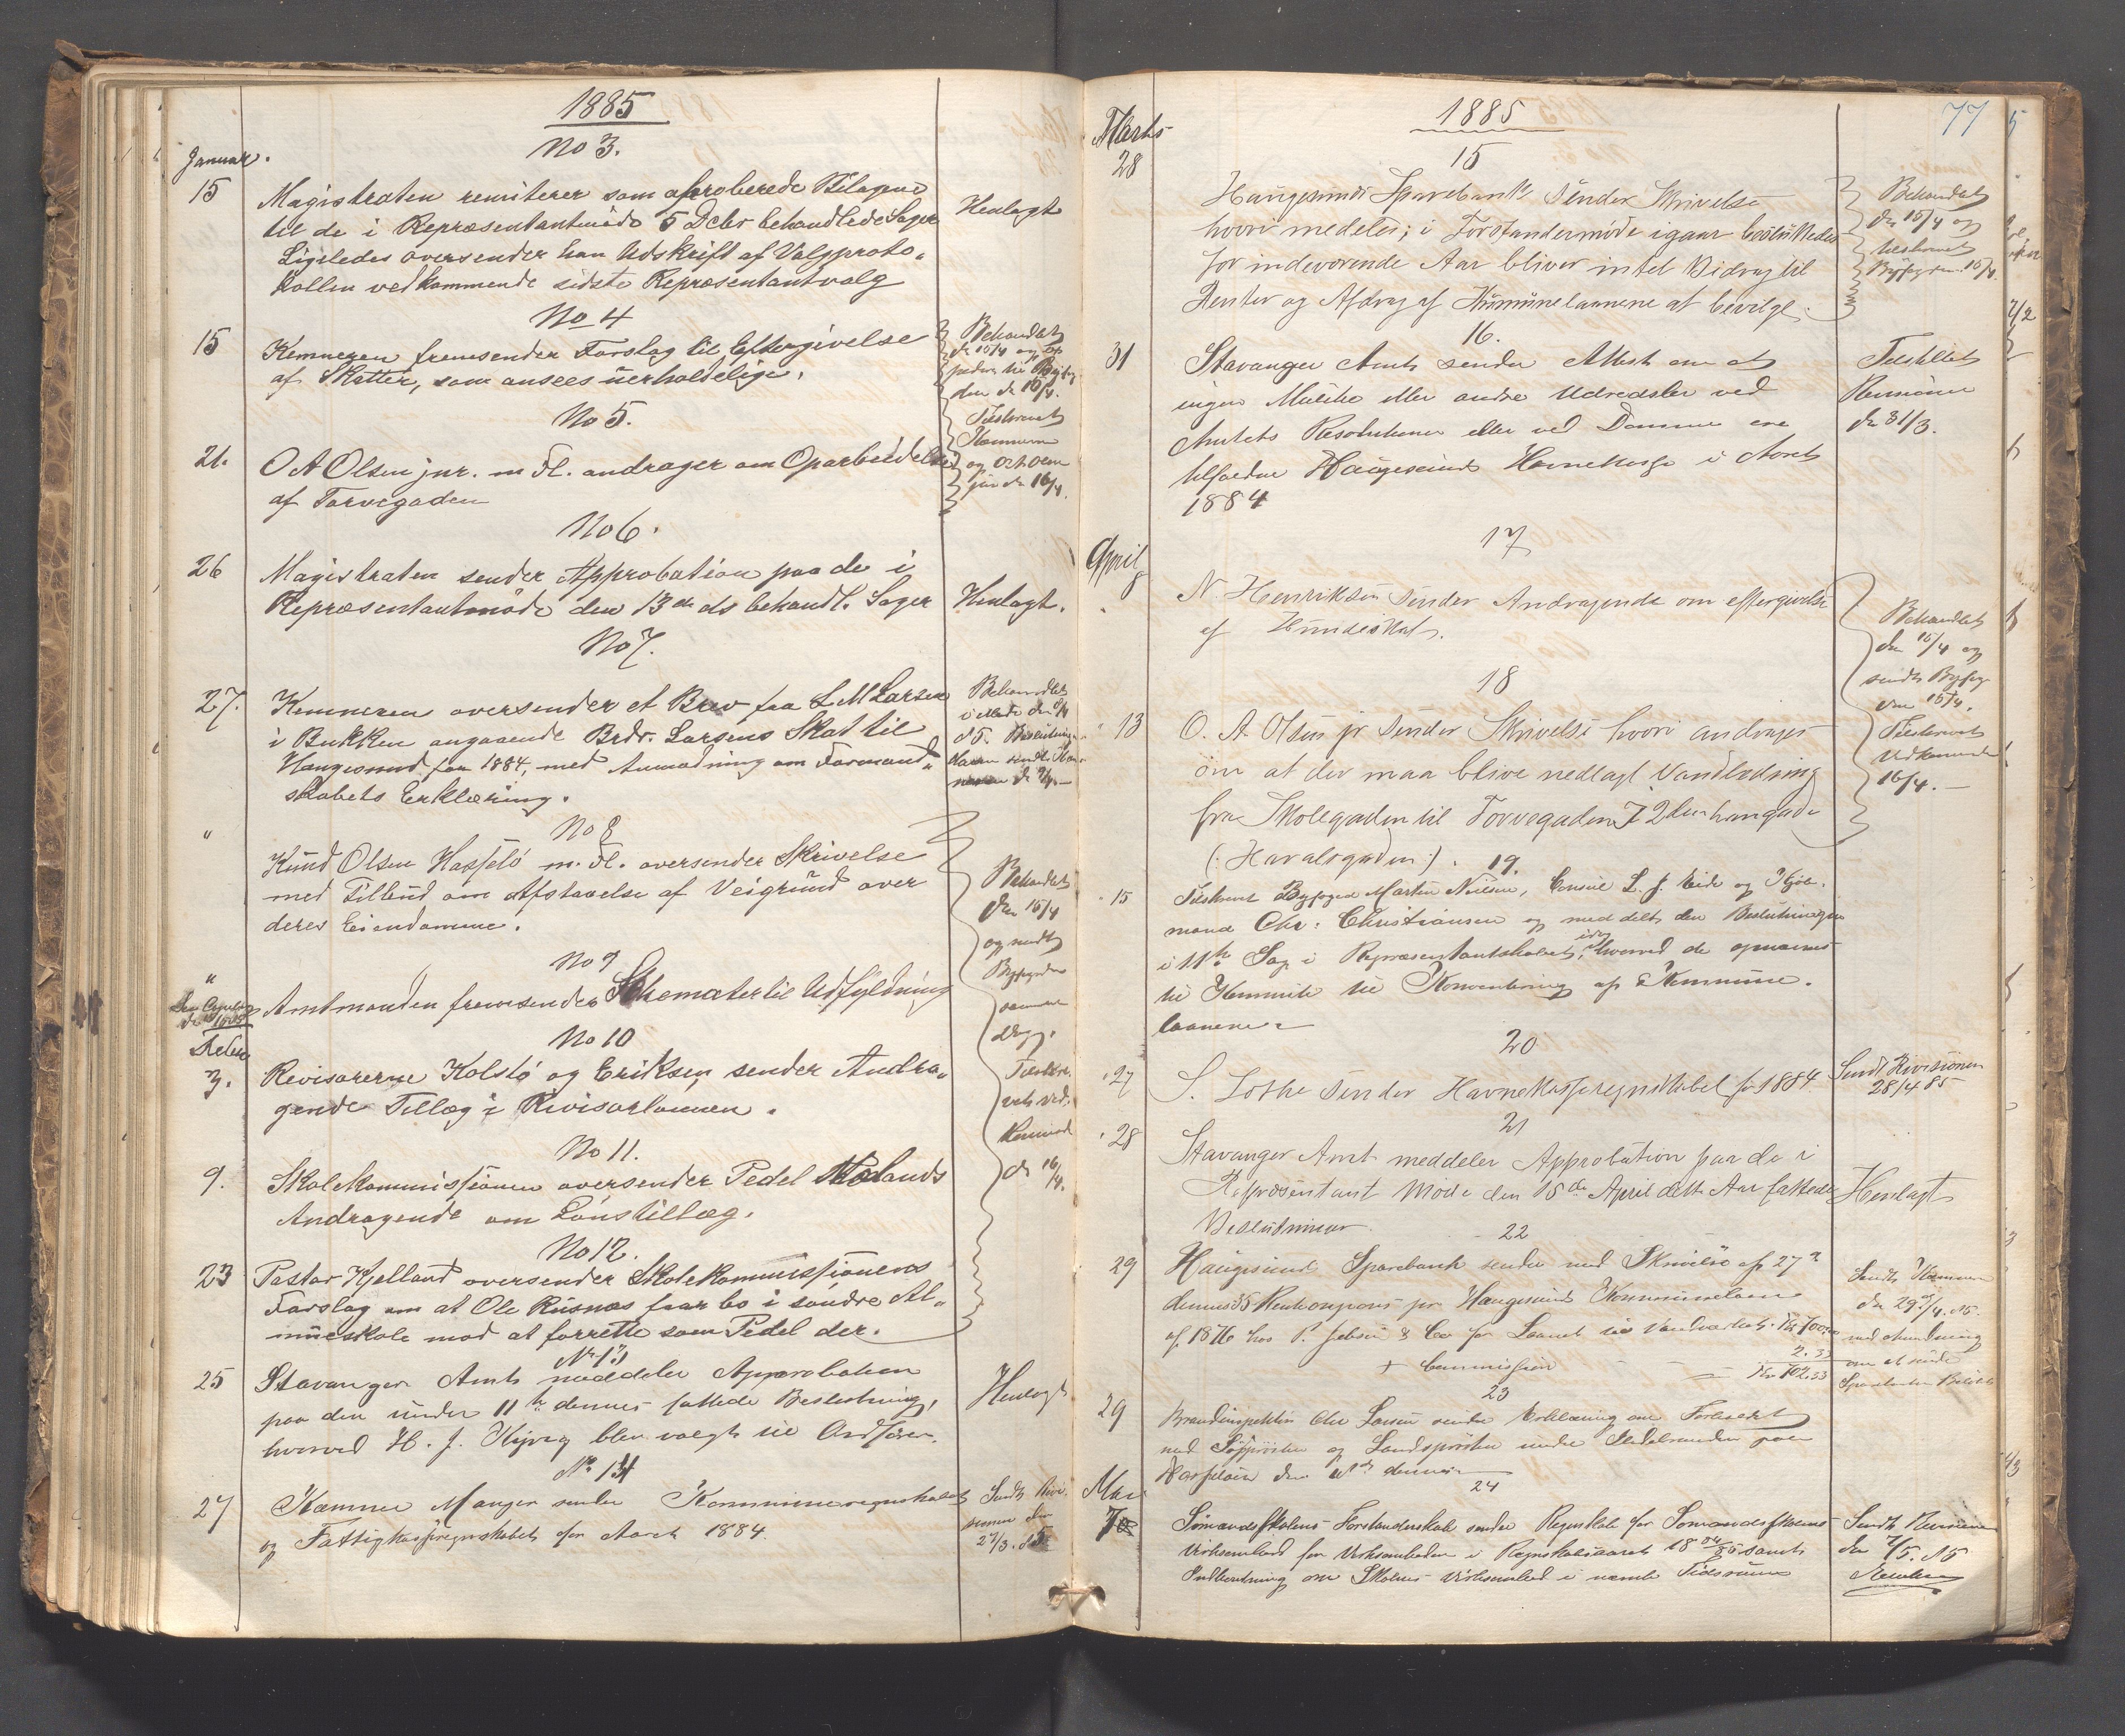 1885
No 3.
Januar.
15
Magistraten remiterer som approberede Bilagene
til de i Repræsentantmøde 5 Dcbr behandlede Sager
Ligeledes oversender han Udskrift af Valgproto-
kollen vedkommende sidste Repræsentantvalg
Henlagt
No 4
15
Kemneren fremsender Forslag til Eftergivelse
af Skatter, som ansees uerholdelige.
Behandlet
de 15/4 og
den de 16/4.
Tilskrevet
Kæmneren
og
de 16/4.
No 5.
21.
O A Olsen jnr. m Fl. andrager om Oparbeidelse
af Torvegaden
No 6.
26
Magistraten sender Approbation paa de i
Repræsentantmøde den 13de ds behandl. Sager
Henlagt.
No 7.
27.
Kemneren oversender et Brev fra L M Larsen
i Bukken angaaende Brdr. Larsens Skat til
Haugesund for 1884, med Anmodning om Formand-
skabets Erklæring.
Behandlet
i Møde den
No 8
"
Knud Olsen Hasselø m. Fl. oversender Skrivelse
med Tilbud om Afstaaelse af Veigrund over
deres Eiendomme.
Behandlet
den 15/4
og sendt
Bygfogden
samme
Dag.
Tilskre-
vet Ved-
kommende
de 16/4.
No 9
"
Amtmanden fremsender Skemaer til Udfyldning
No 10
Febr
3.
Revisorerne Kolstø og Eriksen sender Andra-
gende Tillæg i Revisorlønnen.
No 11.
9.
Skolekommissionen oversender Pedel Skolands
Andragende om Lønstillæg.
No 12.
23
Pastor Kjelland oversender Skolekommissionens
Forslag om at Ole Rusnæs faar bo i søndre Al-
mueskole mod at forrette som Pedel der.
No 13
25
Stavanger Amt meddeler Approbation
paa den under 11te dennes fattede Beslutning,
hvorved H. J. Kyvig blev valgt til Ordfører.
Henlagt
No 14
27
Kæmner Manger sender Kommuneregnskabet
og Fattigkasseregnskabet for Aaret 1884.
Sendt Revi-
sionen den
27/3. 85
1885
77
Marts
15
28
Haugesunds Sparebank sender Skrivelse
hvori medeles; i Forstandermøde igaar besluttedes
for indeværende Aar bliver intet Bidrag til
Renter og Afdrag af Kumunelaanene at bevilge.
Behandlet
den 15/4 og
tilskrevet
Byfogden 16/4
16.
31
Stavanger Amt sender Attest om at
ingen Mulkter eller andre Udredsler ved
Amtets Resolutioner eller ved Domme ere
tilfaldne Haugesunds Havnekasse i Aaret
1884
Tilstillet
Revisionen
de 31/3.
17
April
8
N. Henriksen sender Andragende om eftergivelse
af Hundeskat.
Behandlet
den 15/4 og
sendt Byfogd
den 15/4.
Tilskrevet
Vedkommende
16/4.
18
" 13
O. A. Olsen jr sender Skrivelse hvori andrages
om at der maa blive nedlagt Vandledning
fra Skolegaden til Torvegaden I 2den hangade
(: Haraldsgaden :).
19.
" 15
Tilskrevet Byfoged Martin Nielsen, Consul L. J. Eide og Kjøb-
mand Chr: Christiansen og meddelt den Beslutningen
i 11te Sag i Repræsentantskabet idag, hvorved de opnævnes
til Kommite til Konvertering af Kommune-
laanene
20
" 27
S. Lothe sender Havnekasseregnskabet for 1884
Sendt Revisionen
28/4 85
21
" 28
Stavanger Amt meddeler Approbation paa de i
Repræsentant Møde den 15de April dette Aar fattede
Beslutninger
Henlagt
22
29
Haugesund Sparebank sender med Skrivelse af 27de
dennes 35 Rentecoupons pr Haugesunds Kommunelaan
af 1876 hos P. Jebsen & Co for Laanet til Vandværket. Kr 700,00
+ Commission 2.33
Kr 702.33
Sendt Kæmneren
de 29/4. 85.
med Anmodning
om at sende
Sparebanken Beløbet
23
29
Brandinspektør Chr Larsen sender Erklæring om Forholdet
med Søsprøiten og Landsprøiten under Ildebranden paa
Hasseløen den dennes
24
Mai
7
Sømandsskolens Forstanderskab sender Regnskab for Sømandsskolens
Virksomhed for Virksomheden i Regnskabsaaret 1884/85 samt
Indberetning om Skolens Virksomhed i nævnte Tidsrum
Sendt Revisionen
den 7/5. 85